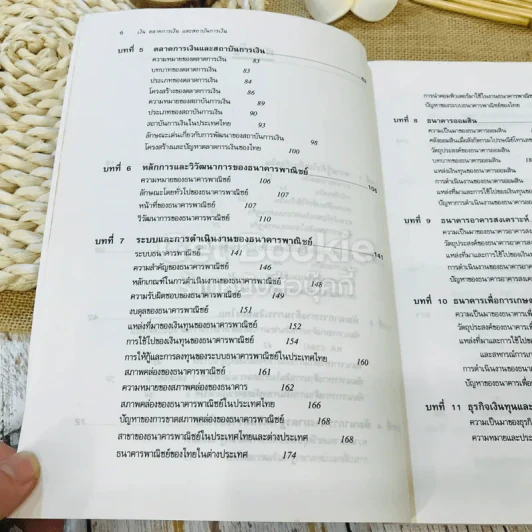 6 เงิน ตลาดการเงิน และสถาบันการเงิน
บทที่ 5 ตลาดการเงินและสถาบันการเงิน
ความหมายของตลาดการเงิน 83
บทบาทของตลาดการเงิน 83
ประเภทของตลาดการเงิน 84
โครงสร้างของตลาดการเงิน 86
ความหมายของสถาบันการเงิน 89
ประเภทของสถาบันการเงิน 90
สถาบันการเงินในประเทศไทย 93
ลักษณะเด่นเกี่ยวกับการพัฒนาของสถาบันการเงิน 98
โครงสร้างและปัญหาตลาดการเงินของไทย 100
บทที่ 6 หลักการและวิวัฒนาการของธนาคารพาณิชย์
ความหมายของธนาคารพาณิชย์ 106
ลักษณะโดยทั่วไปของธนาคารพาณิชย์ 107
หน้าที่ของธนาคารพาณิชย์ 107
วิวัฒนาการของธนาคารพาณิชย์ 110
บทที่ 7 ระบบและการดำเนินงานของธนาคารพาณิชย์ 141
ระบบธนาคารพาณิชย์ 141
ความสำคัญของธนาคารพาณิชย์ 146
หลักเกณฑ์ในการดำเนินงานของธนาคารพาณิชย์ 148
ความรับผิดชอบของธนาคารพาณิชย์ 149
งบดุลของธนาคารพาณิชย์ 151
แหล่งที่มาของเงินทุนของธนาคารพาณิชย์ 152
การใช้ไปของเงินทุนของธนาคารพาณิชย์ 154
การให้กู้และการลงทุนของระบบธนาคารพาณิชย์ในประเทศไทย 160
สภาพคล่องของธนาคารพาณิชย์ 161
ความหมายของสภาพคล่องของธนาคาร 162
สภาพคล่องของธนาคารพาณิชย์ในประเทศไทย 166
ปัญหาของการขาดสภาพคล่องของธนาคารพาณิชย์ 168
สาขาของธนาคารพาณิชย์ในประเทศไทยและต่างประเทศ 168
ธนาคารพาณิชย์ของไทยในต่างประเทศ 174
การนำคอมพิวเตอร์มาใช้ในงานธนาคารพาณิชย์
ปัญหาของระบบธนาคารพาณิชย์ของไทย
บทที่ 8 ธนาคารออมสิน
ความเป็นมาของธนาคารออมสิน
คลังออมสินเมื่อสังกัดกรมไปรษณีย์โทรเลข
วัตถุประสงค์ของธนาคารออมสิน
บทบาทของธนาคารออมสิน
แหล่งเงินทุนของธนาคารออมสิน
การดำเนินงานของธนาคารออมสิน
แหล่งที่มาและการใช้ไปของเงินทุน
ปัญหาการดำเนินงานของธนาคาร
บทที่ 9 ธนาคารอาคารสงเคราะห์
ความเป็นมาของธนาคารอาคาร
วัตถุประสงค์ของธนาคารอาคาร
แหล่งที่มาและการใช้ไปของเงิน
การดำเนินงานของธนาคารอาคาร
ปัญหาของธนาคารอาคารสงเคราะห์
บทที่ 10 ธนาคารเพื่อการเกษตร
ความเป็นมาของธนาคารเพื่อ
วัตถุประสงค์ของธนาคาร
แหล่งที่มาและการใช้ไปของ
และสหกรณ์การเกษตร
การดำเนินงานของธนาคาร
ปัญหาของธนาคารเพื่อ
บทที่ 11 ธุรกิจเงินทุนและ
ความเป็นมาของธุรกิจ
ความหมายและประเภท
Get Bookie
ร้านหนังสือบุ๊คกี้